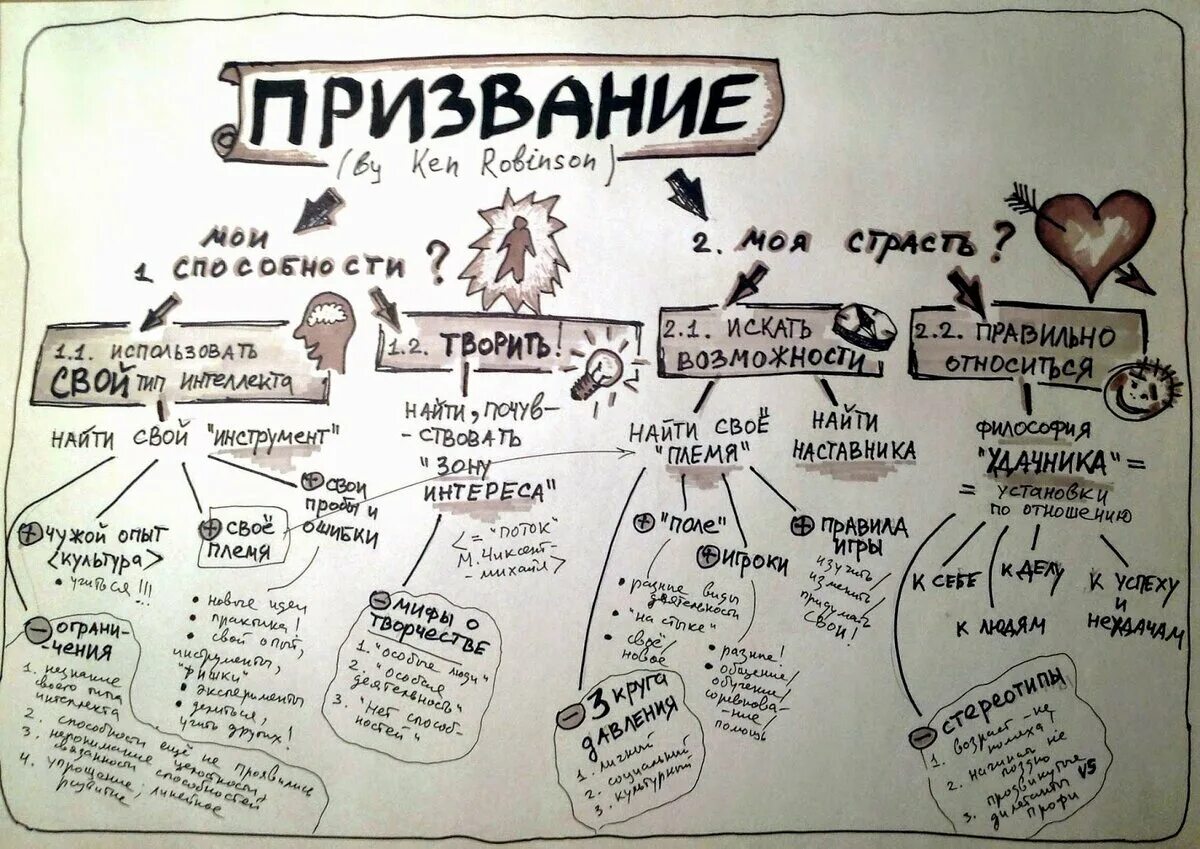 ПРИЗВАНИЕ
(By Ken Robinson)
МОИ
1. СПОСОБНОСТИ ?
2. МОЯ СТРАСТЬ ?
1.1. ИСПОЛЬЗОВАТЬ
СВОЙ ТИП ИНТЕЛЛЕКТА
НАЙТИ СВОЙ "ИНСТРУМЕНТ"
+ ЧУЖОЙ ОПЫТ
<КУЛЬТУРА>
• учиться!!!
+ СВОЁ
ПЛЕМЯ
+ СВОИ
ПРОБЫ И
ОШИБКИ
• новые идеи
• практика!
• свой опыт,
инструменты,
"фишки"
• эксперименты
• делиться,
учить других!
- ОГРАНИ-
ЧЕНИЯ
1. незнание
своего типа
интеллекта
2. способности ещё не проявились
3. непонимание целостности,
связанности способностей
4. упрощение, линейное
развитие
1.2. ТВОРИТЬ!
НАЙТИ, ПОЧУВ-
-СТВОВАТЬ
"ЗОНУ
ИНТЕРЕСА"
<="ПОТОК"
М. Чиксент-
-михайи>
- МИФЫ О
ТВОРЧЕСТВЕ
1. "особые люди"
2. "особая
деятельность"
3. "нет способ-
ностей"
2.1. ИСКАТЬ
ВОЗМОЖНОСТИ
НАЙТИ СВОЁ
"ПЛЕМЯ"
НАЙТИ
НАСТАВНИКА
+ "ПОЛЕ"
• разные виды
деятельности
• "на стыке"
• своё/
новое
+ ИГРОКИ
• разные!
• общение/
обучение/
соревнова-
ние/
помощь
+ ПРАВИЛА
ИГРЫ
изучить/
изменить/
придумать
свои!
- 3 КРУГА
ДАВЛЕНИЯ
1. личный
2. социальный
3. культурный
2.2. ПРАВИЛЬНО
ОТНОСИТЬСЯ
ФИЛОСОФИЯ
"УДАЧНИКА" =
= УСТАНОВКИ
ПО ОТНОШЕНИЮ
К СЕБЕ
К ЛЮДЯМ
К ДЕЛУ
К УСПЕХУ
И
НЕУДАЧАМ
- СТЕРЕОТИПЫ
1. возраст - не
помеха!
2. начинать не
поздно
3. продвинутые
дилетанты VS
профи